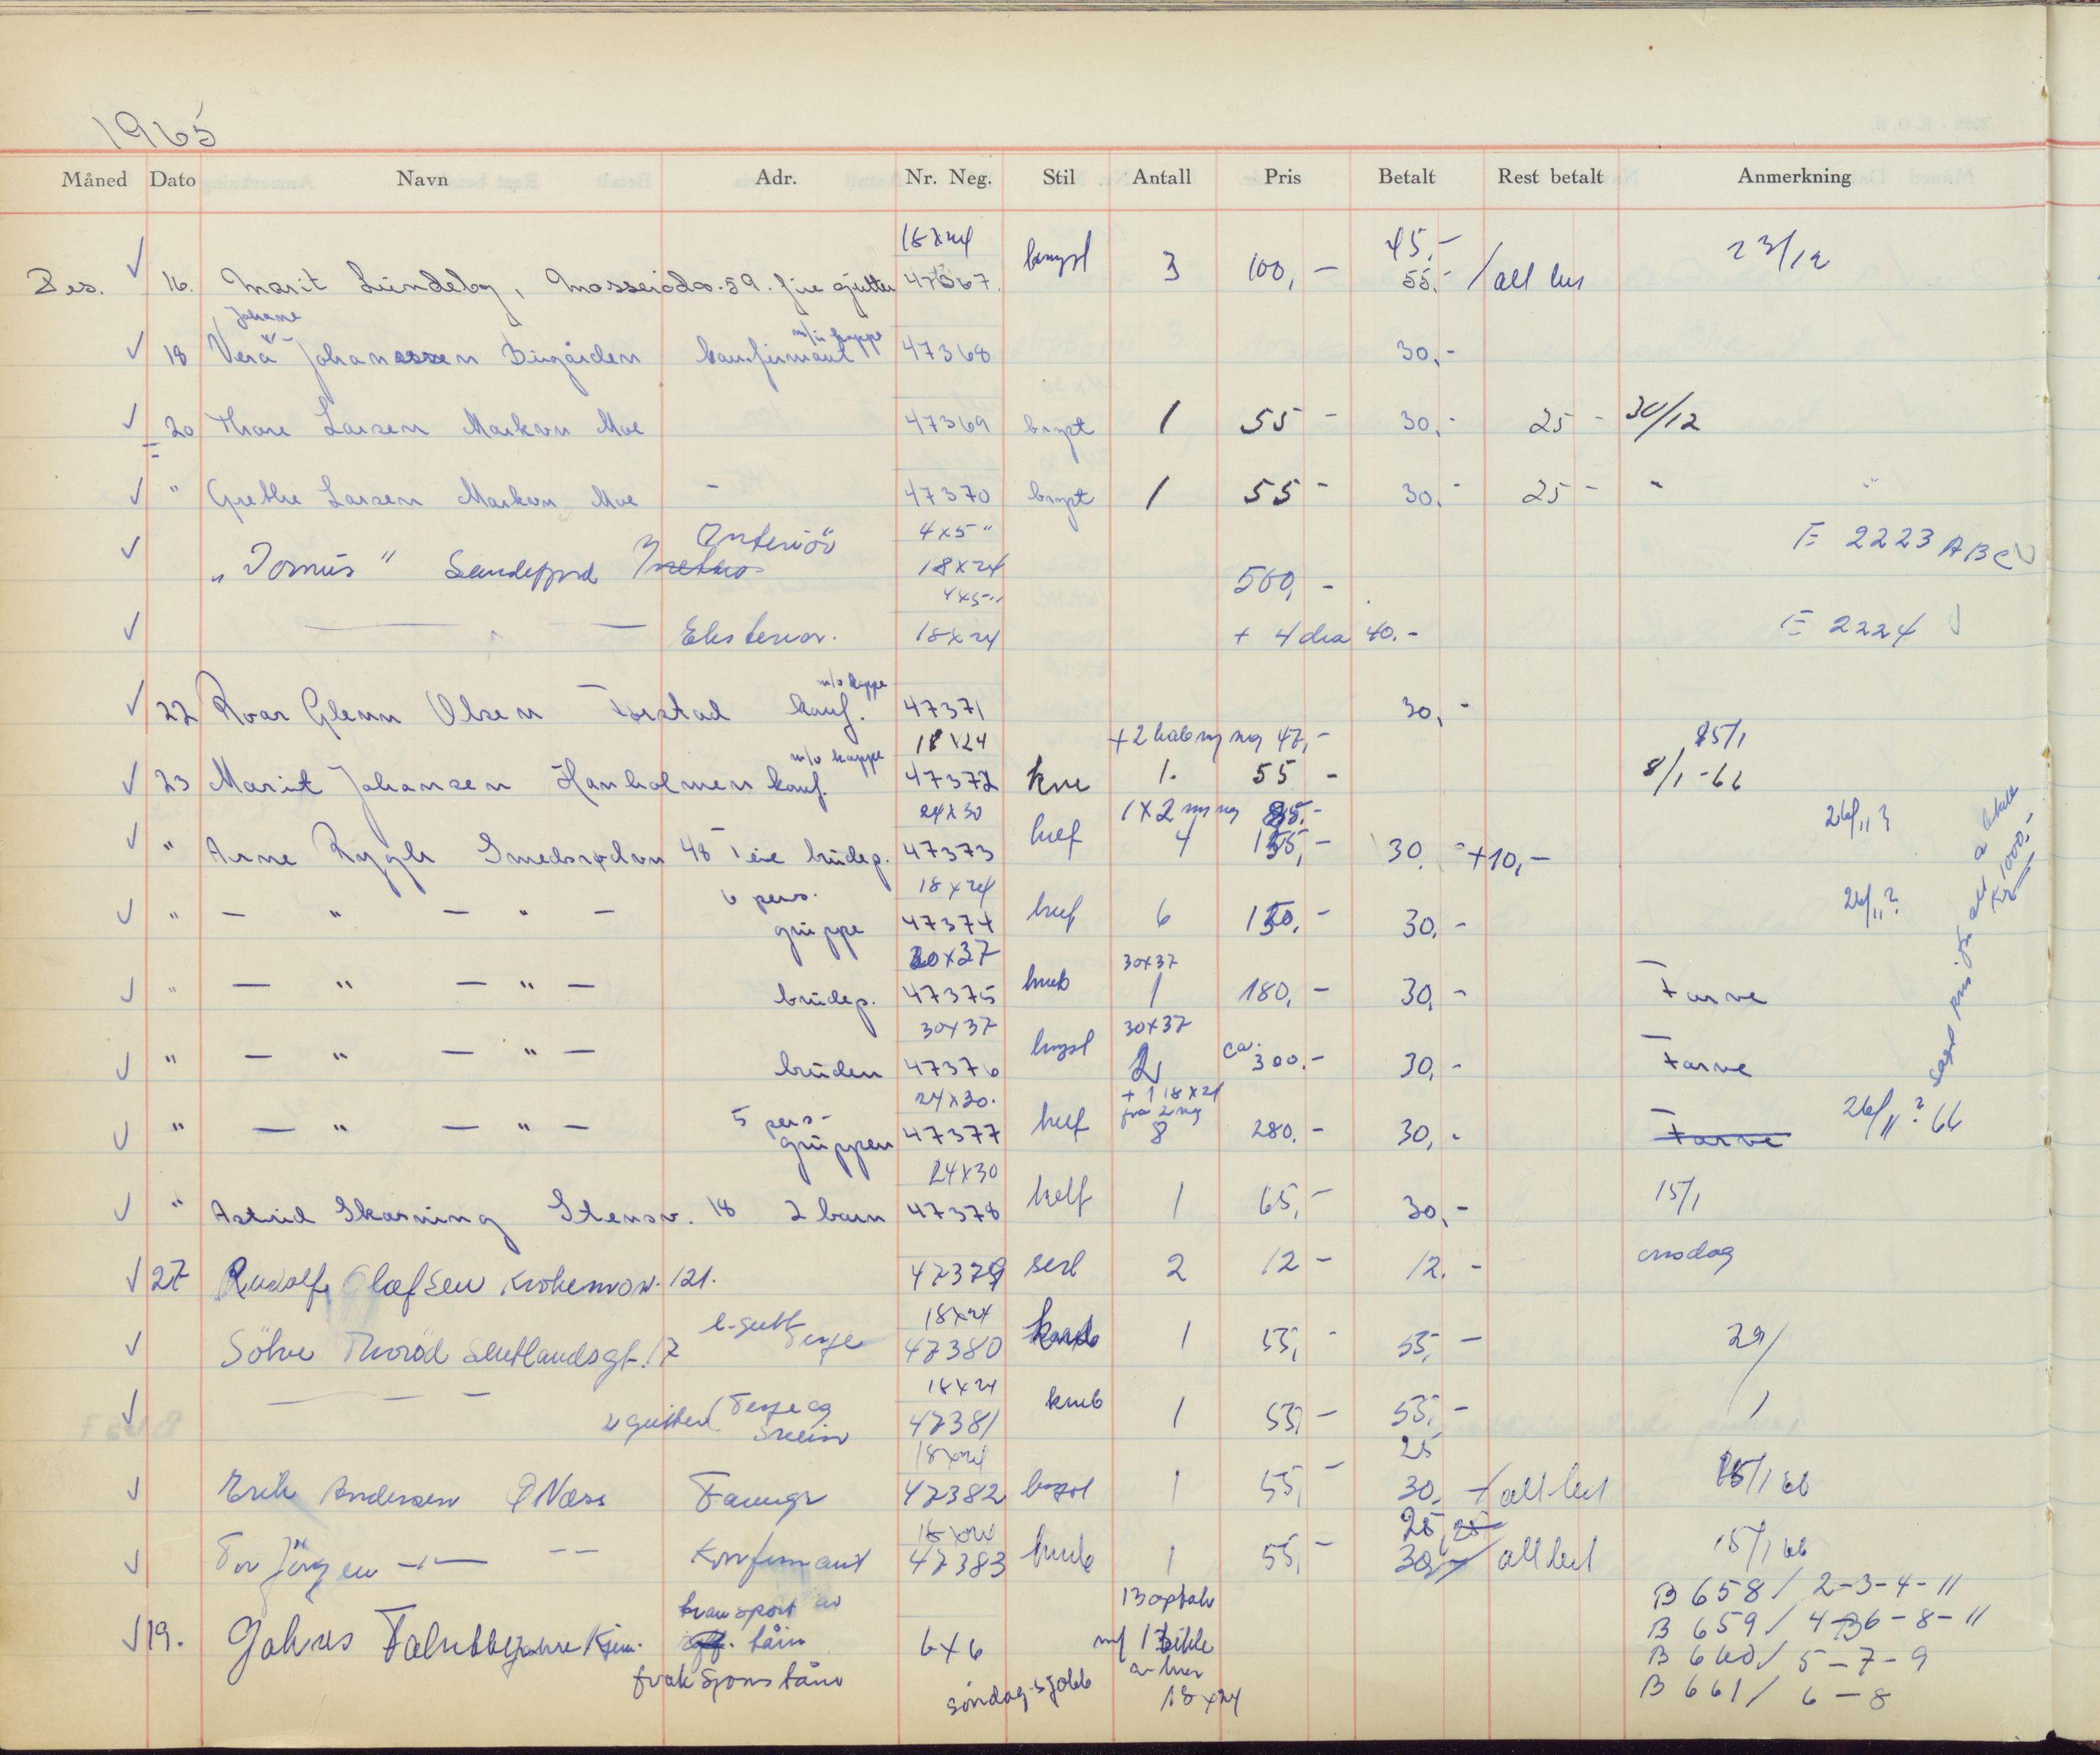 1965
Måned Dato Navn Adr. Nr. Neg. Stil Antall Pris Betalt Rest betalt Anmerkning
18x24 45,-
Des. 16. Marit Lundeby, Mosserödv. 59. fire gutter 47367. bryst 3 100,- 55,- / alt bet 23/12
Johanne m/u kappe
18 Vera Johanssen Bugården konfirmant 47368 30,-
20 Thore Larsen Markvn Moe 47369 bryst 1 55 - 30,- 25 - 30/12
" Grethe Larsen Markvn Moe - 47370 bryst 1 55 - 30,- 25 - " "
Interiör 4x5"
"Domus" Sandefjord 18x24 560,- E 2223 ABC
4x5"
Eksteriør. 18x24 + 4 dia 40.- E 2224
m/u kappe
22 Roar Glenn Olsen Torstad konf. 47371 30,-
18x24 + 2 kab ny neg 47,- 15/1
m/u kappe
23 Marit Johansen Hanholmen konf. 47372 kne 1. 55 - 8/1-66
24x30 1x2 ny neg 85,- 26/11 ?
" Arne Rygh Smedsrødvn 48 brudep. 47373 helf 4 155,- 30. - +10,-
6 pers. 18x24 26/11 ?
" - " - " - gruppe 47374 helf 6 150,- 30,-
30x37 30x37
" - " - " - brudep. 47375 kneb 1 180,- 30,- Farve
30x37 30x37
" - " - " - bruden 47376 bryst 2 ca. 300,- 30,- Farve
24x30. + 1 18x24
fra 2 neg
5 pers-
" - " - " - gruppen 47377 helf 8 280.- 30,- Farve 26/11 ? 66
alt betalt
Kr 1000,-
24x30
" Astrid Skarning Stensv. 18 2 barn 47378 helf 1 65,- 30,- 15/1
27 Rudolf Olafsen Krokemov. 121. 47379 serl 2 12 - 12. - onsdag
18x24
Sölve Thoröd Shetlandsgt. 17 l-gutt Terje 47380 kneb 1 55,- 55,- 29/
18x24
- - - 2 gutter (Terje og Svein 47381 kneb 1 55,- 55,- 1
18x24 25
Erik Andersen Ö Næss Famgr 47382 bryst 1 55,- 30,- / alt bet 15/1 66
18x24 25,
Tor Jörgen -"- -- Konfirmant 47383 kneb 1 55,- 30,- / alt bet 15/1 66
transport av 13 opptak B 658 / 2-3-4-11
19. Jahres tårn 6x6 B 659 / 4-6-8-11
fraksjons tårn B 660 / 5-7-9
søndag-sjobb 18x24 B 661 / 6-8